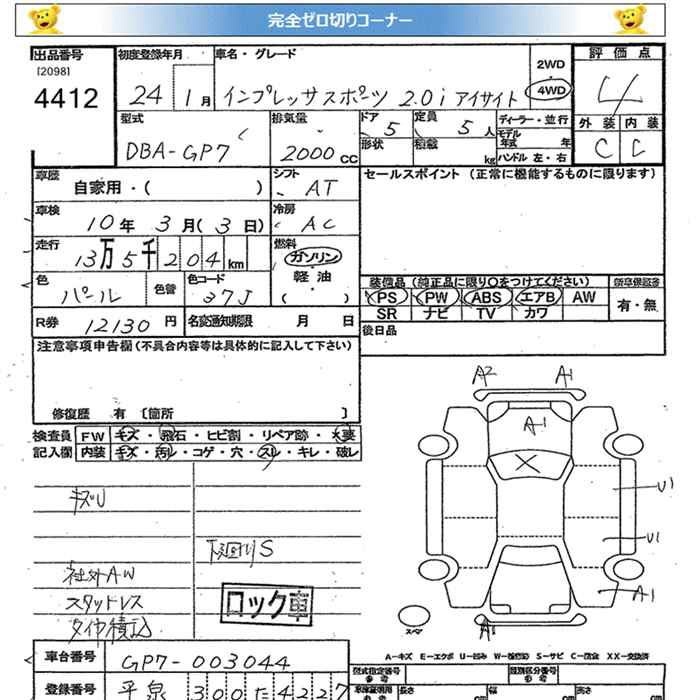 完全ゼロ切りコーナー
出品番号
[2098]
4412
初度登録年月
24 1月
車名・グレード
インプレッサスポーツ 2.0i アイサイト
2WD
4WD
評価点
4
外装 内装
C C
型式
DBA-GP7
排気量
2000cc
ドア 5
形状
定員 5人
積載 kg
ディーラー・並行
モデル年式 年
ハンドル 左・右
車歴
自家用・( )
シフト
AT
セールスポイント (正常に機能するものに限ります)
車検
10年 3月(3日)
冷房
AC
走行
13万5千204km
燃料
ガソリン
軽油
( )
色
パール
色替
色コード
37J
装備品 (純正品に限り○をつけてください)
PS PW ABS エアB AW
SR ナビ TV カワ
新車保証書
有・無
R券 12130円
名変通知期限 月 日
後日品
注意事項申告欄(不具合内容等は具体的に記入して下さい)
修復歴 有 〔箇所 〕
検査員
記入欄
FW キズ・飛石・ヒビ割・リペア跡・×要
内装 キズ・汚れ・コゲ・穴・スレ・キレ・破レ
キズU
下廻りS
社外AW
スタッドレス
タイヤ積込
ロック車
A2 A1
A-1
U1
U1
A1
A1
スペア
A-キズ E-エクボ U-凹み W-補修跡 S-サビ C-腐食 XX-交換済
車台番号
GP7-003044
登録番号
平泉 300 た 4227
型式指定番号
類別区分番号
参考
長さ 幅 高さ